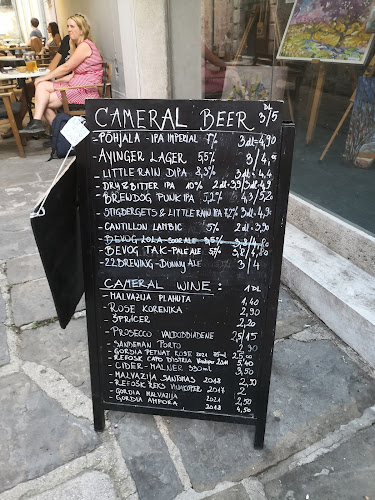 CAMERAL BEER DL 3/5
- PÕHJALA - IPA IMPERIAL 7% 3dl - 4,90
- AYINGER LAGER 5,5% 3/4,-
- LITTLE RAIN DIPA 8,5% 3dl - 4,4
- DRY & BITTER IPA 10% 2dl - 3,9
- BREWDOG PUNK IPA 5,2% 4,3/5,20
- STIGBERGETS & LITTLE RAIN IPA 7,2% 3dl - 4,90
- CANTILLON LAMBIC 5% 2dl - 3,90
- BEVOG LOLA SOUR ALE 3,5% 3,8/4,80
- BEVOG TAK - PALE ALE 5% 3,8/4,80
- 22BREWING - DUNNY ALE 5% 3/4
CAMERAL WINE : 1DL
- MALVAZIJA PLAHUTA 1,40
- ROSE KORENIKA 2,90
- ŠPRICAR 2,20
- PROSECCO VALDOBBIADENE 2,5/15
- SANDEMAN PORTO 2,90
- GORDIA PETNAT ROSE 2021 25,00
- REFOSK CAPO D'ISTRIA Vinakoper 2011 5,40
- CIDER - MALNER 330ml 3,50
- MALVAZIJA SANTOMAS 2018 2,50
- REFOŠK REKS VINAKOPER 2018 2
- GORDIA MALVAZIJA 2021
- GORDIA AMPORA 2018 4,50